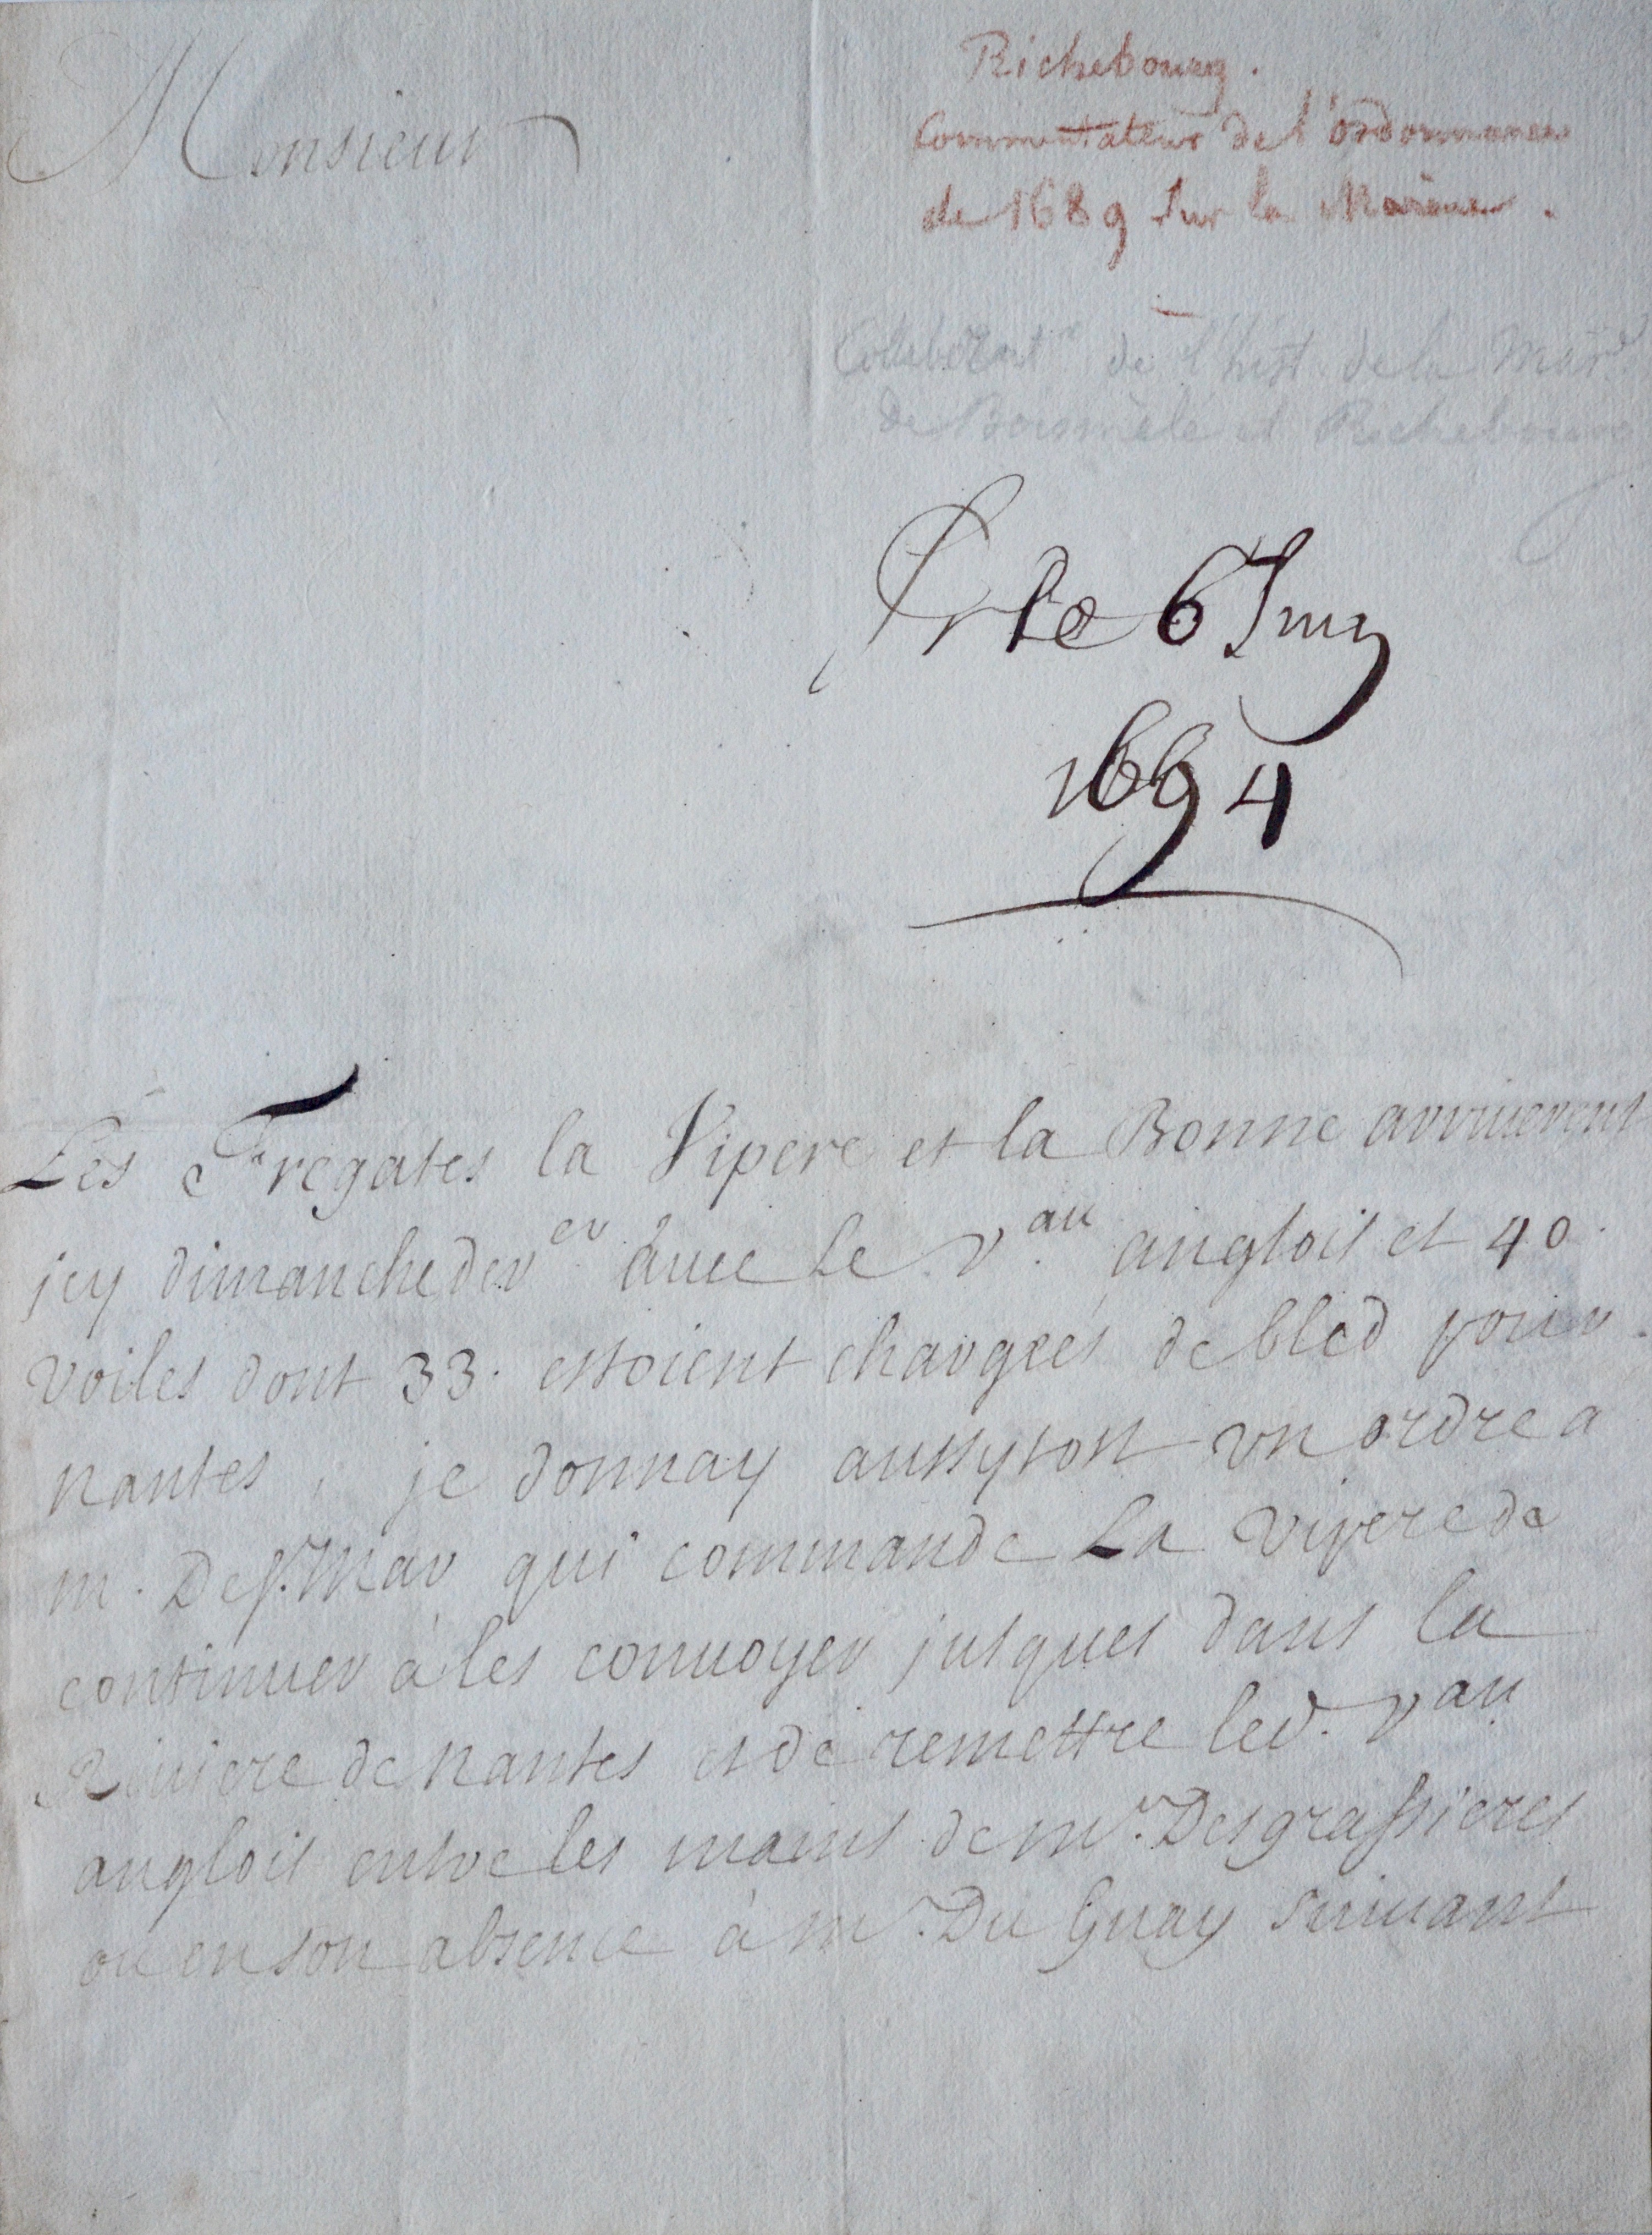 Monsieur
Richebourg.
Commentateur de l'ordonnance
de 1689 sur la Marine.
Collaborat.r de l'hist. de la Mar.
de Boismêlé et Richebourg
le 6 Juin
1694
Les Fregates la Vipere et la Bonne arriuerent
jcy dimanche der.er auec Le v.au anglois et 40.
voiles dont 33. estoient chargées de bled pour
nantes, je donnay aussytost vn ordre a
m. De s.t Mar qui commande La vipere de
continuer à les conuoyer jusques dans la
Riuiere de Nantes et de remettre led. v.au
anglois entre les mains de m.r Desgrassieres
ou en son absence à m.r Du Guay suiuant